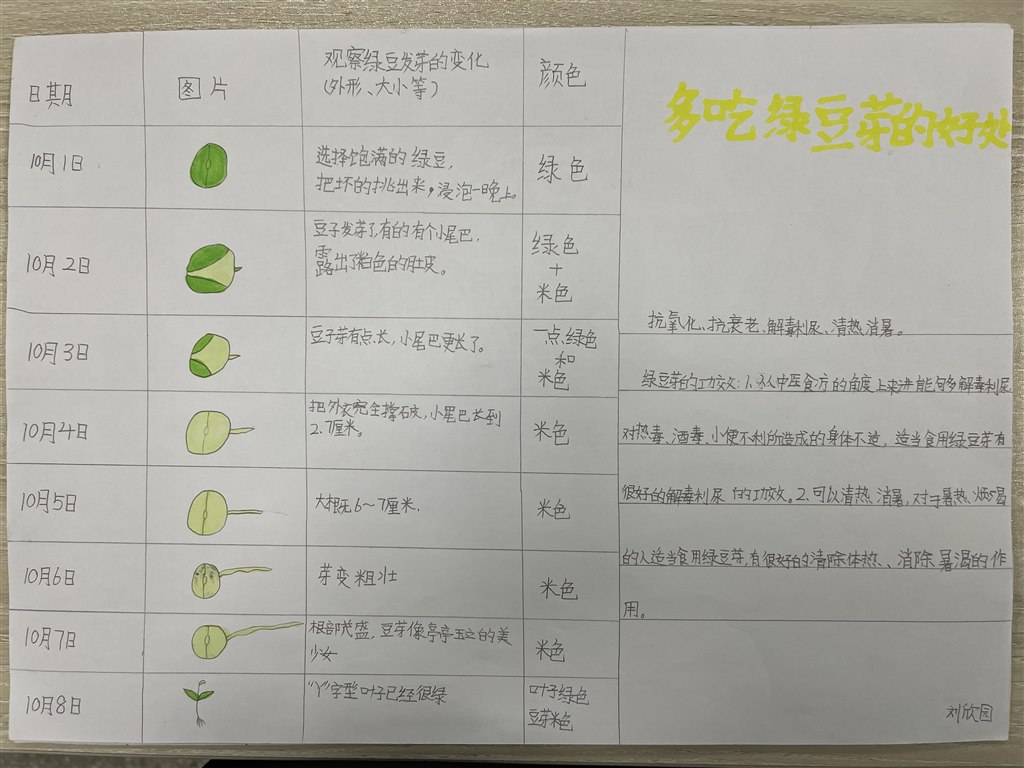 日期
图片
观察绿豆发芽的变化
(外形、大小等)
颜色
10月1日
选择饱满的绿豆,
把坏的挑出来,浸泡一晚上。
绿色
10月2日
豆子发芽了,有的有个小尾巴,
露出了粉色的肚皮。
绿色
+
米色
10月3日
豆子芽有点长,小尾巴更长了。
一点绿色
和
米色
10月4日
把外衣完全撑破,小尾巴长到
2.7厘米。
米色
10月5日
大概6~7厘米.
米色
10月6日
芽变粗壮
米色
10月7日
根部茂盛,豆芽像亭亭玉立的美
少女
米色
10月8日
"丫"字型叶子已经很绿
叶子绿色
豆芽米色
多吃绿豆芽的好处
抗氧化、抗衰老、解毒利尿、清热消暑。
绿豆芽的功效:1.从中医食疗的角度上来讲能够多解毒利尿
对热毒、酒毒、小便不利所造成的身体不适,适当食用绿豆芽有
很好的解毒利尿的功效。2.可以清热消暑,对于暑热、烦渴
的人适当食用绿豆芽,有很好的清除体热、消除暑渴的作
用。
刘欣园